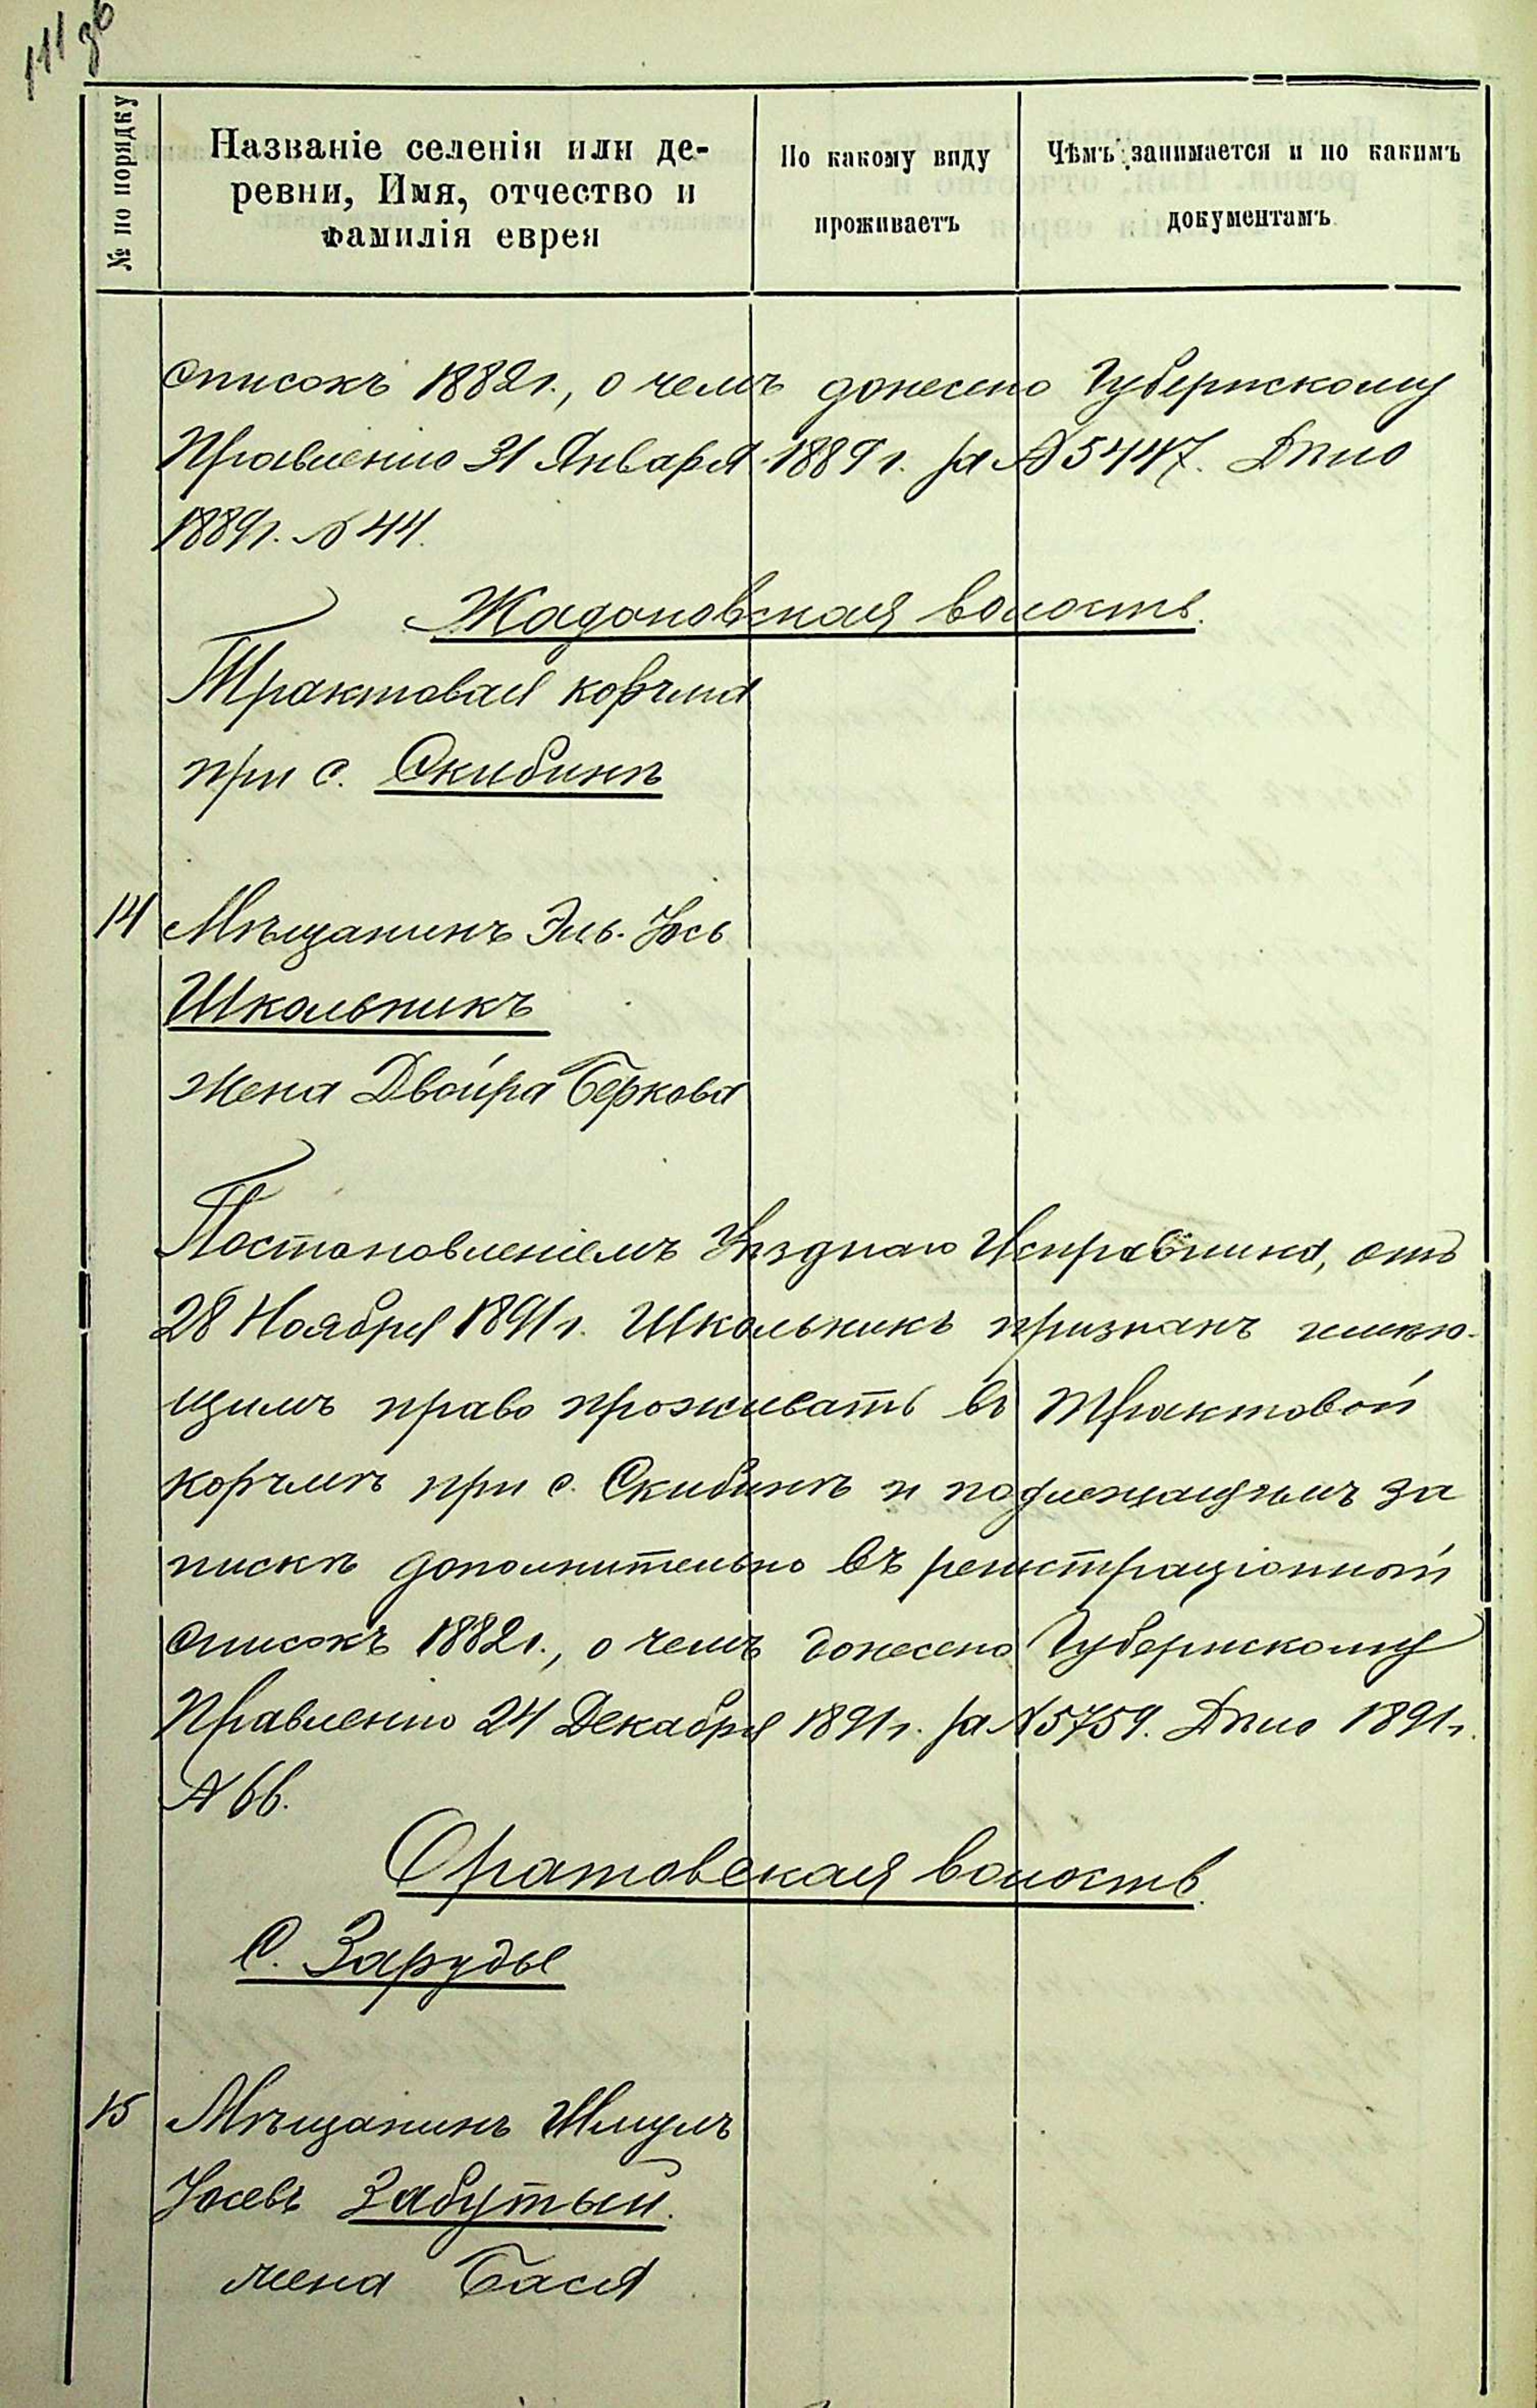 111 об
№ по порядку
Названіе селенія или де-
ревни, Имя, отчество и
фамилія еврея
По какому виду
проживаетъ
Чѣмъ занимается и по какимъ
документамъ
списокъ 1882 г., о чемъ донесено Губернскому
Правленію 31 Января 1889 г. за № 5447. Дѣло
1889 г. № 44.
Жадановская волость.
Трактовая корчма
при с. Скибинѣ
14 Мѣщанинъ Эль-Іось
Школьникъ
жена Двойра Беркова
Постановленіемъ Уѣзднаго Исправника, отъ
28 Ноября 1891 г. Школьникъ признанъ имѣю-
щимъ право проживать въ трактовой
корчмѣ при с. Скибинѣ и подлежащимъ за
пискѣ дополнительно въ регистраціонный
списокъ 1882 г., о чемъ донесено Губернскому
Правленію 24 Декабря 1891 г. за № 5759. Дѣло 1891 г.
№ 66.
Оратовская волость.
С. Зарудье
15 Мѣщанинъ Шмуль
Іосевъ Забутый.
жена Бася